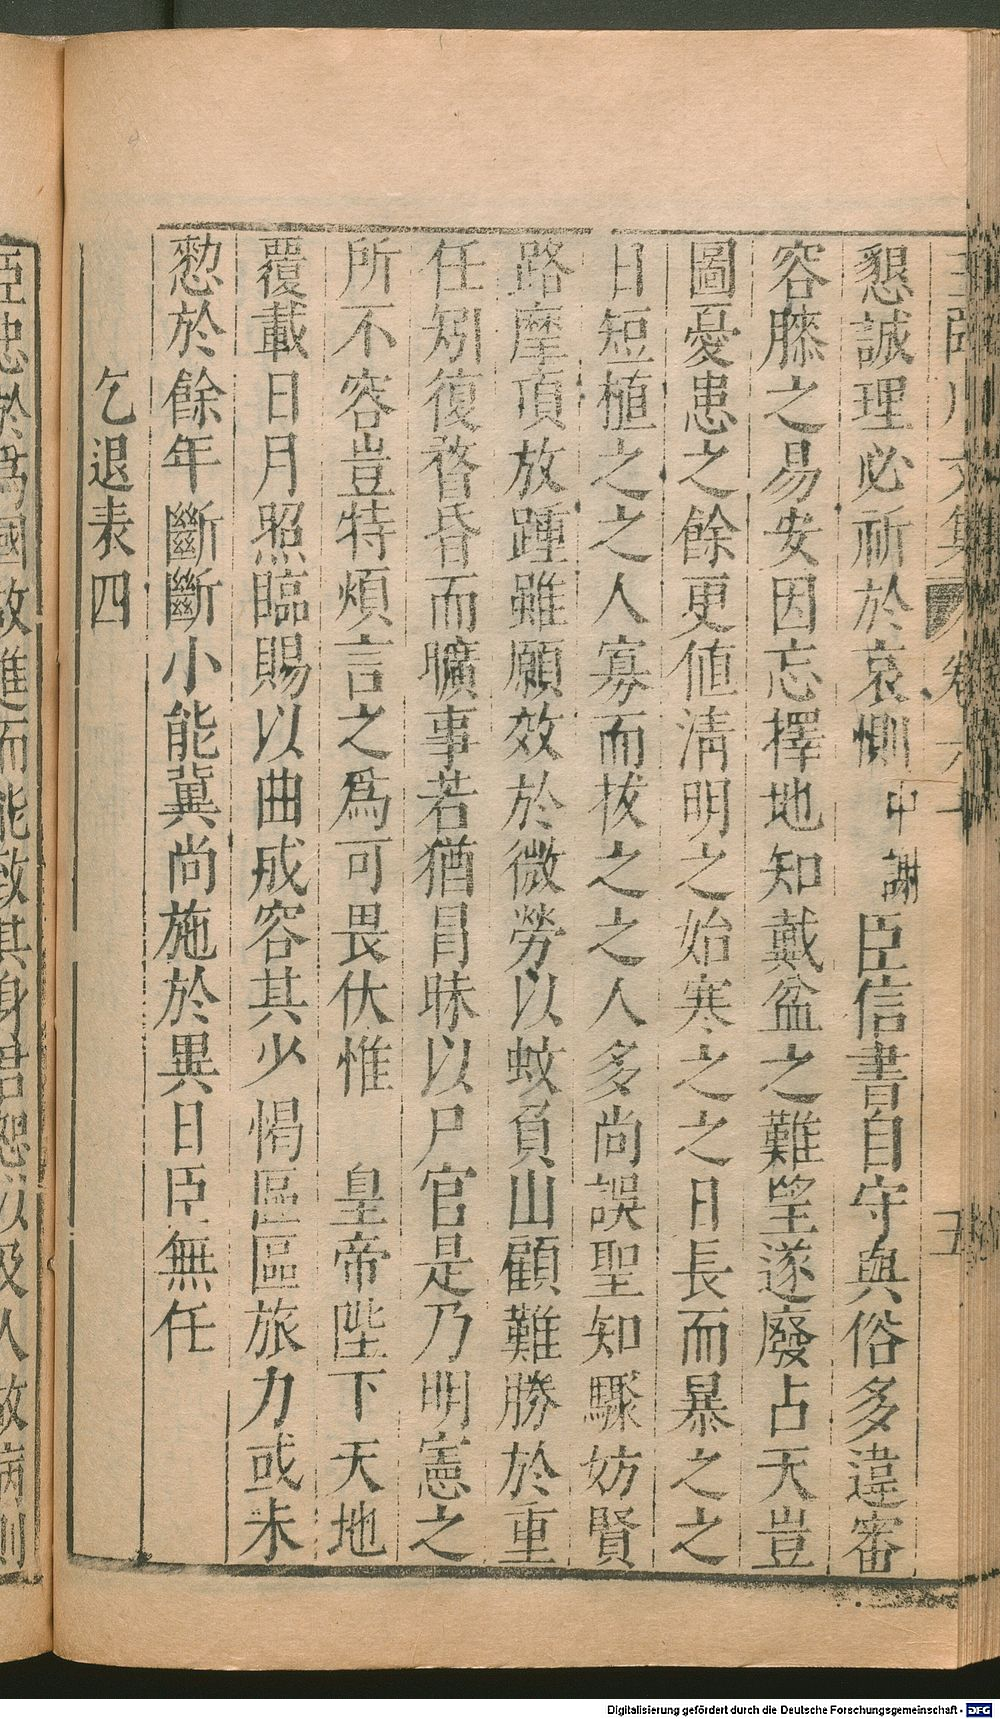 懇誠理必祈於哀惻中謝臣信書自守與俗多違審
容膝之易安因忘擇地知戴盆之難望遂廢占天豈
圖憂患之餘更値淸明之始寒之之日長而暴之之
日短植之之人寡而拔之之人多尚誤聖知驟妨賢
路摩頂放踵雖願效於微勞以蚊負山顧難勝於重
任矧復瞀昏而曠事若猶冒昧以尸官是乃明憲之
所不容豈特煩言之爲可畏伏惟 皇帝陛下天地
覆載日月照臨賜以曲成容其少愒區區旅力或未
愆於餘年斷斷小能冀尚施於異日臣無任
乞退表四
臣忠於爲國故進而能致其身君恕以及人故病則
Digitalisierung gefördert durch die Deutsche Forschungsgemeinschaft - DFG